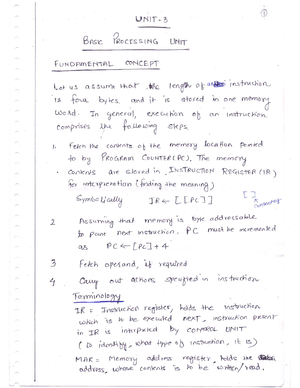 UNIT-3
BASIC PROCESSING UNIT
FUNDAMENTAL CONCEPT
Let us assume that the length of instruction
is four bytes, and it is stored in one memory
word. In general, execution of an instruction
comprises the following steps
1. Fetch the contents of the memory location pointed
to by PROGRAM COUNTER(PC). The memory
contents are stored in, INSTRUCTION REGISTER(IR)
for interpretation (finding the meaning)
Symbolically IR ← [[PC]] [ ]
2 Assuming that memory is byte addressable
to point next instruction. PC must be incremented
as PC ← [PC] + 4
3 Fetch operand, if required
4 Carry out actions specified in instruction
Terminology
IR = Instruction register, holds the instruction
which is to be executed next, instruction present
in IR is interpreted by CONTROL UNIT
(to identify, what type of instruction, it is)
MAR = Memory address register, holds the
address, whose contents is to be written/read.